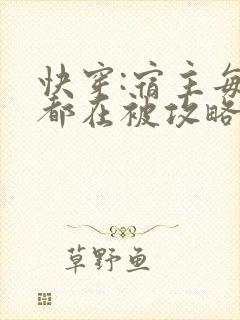 快穿:宿主每
都在被攻略
草野鱼